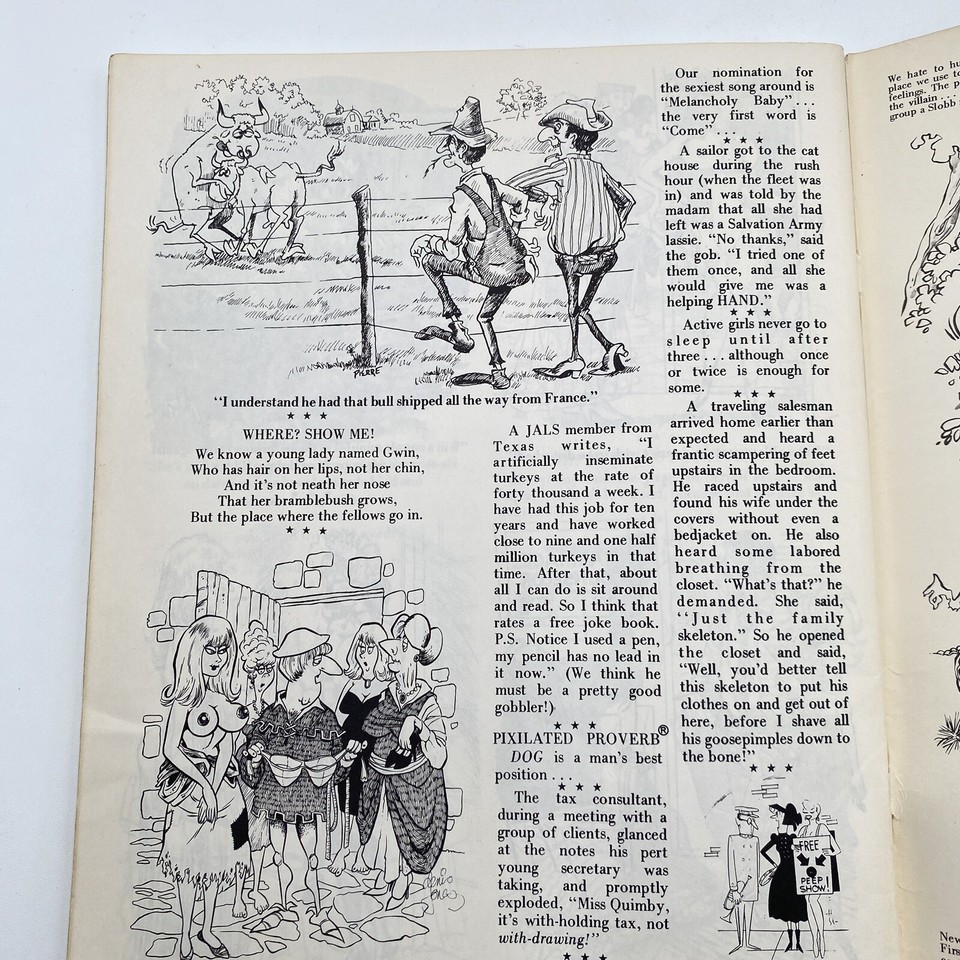 PIERRE
"I understand he had that bull shipped all the way from France."
★ ★ ★
WHERE? SHOW ME!
We know a young lady named Gwin,
Who has hair on her lips, not her chin,
And it's not neath her nose
That her bramblebush grows,
But the place where the fellows go in.
★ ★ ★
A JALS member from
Texas writes, "I
artificially inseminate
turkeys at the rate of
forty thousand a week. I
have had this job for ten
years and have worked
close to nine and one half
million turkeys in that
time. After that, about
all I can do is sit around
and read. So I think that
rates a free joke book.
P.S. Notice I used a pen,
my pencil has no lead in
it now." (We think he
must be a pretty good
gobbler!)
★ ★ ★
PIXILATED PROVERB®
DOG is a man's best
position . . .
★ ★ ★
The tax consultant,
during a meeting with a
group of clients, glanced
at the notes his pert
young secretary was
taking, and promptly
exploded, "Miss Quimby,
it's with-holding tax, not
with-drawing!"
★ ★ ★
Our nomination for
the sexiest song around is
"Melancholy Baby" . . .
the very first word is
"Come" . . .
★ ★ ★
A sailor got to the cat
house during the rush
hour (when the fleet was
in) and was told by the
madam that all she had
left was a Salvation Army
lassie. "No thanks," said
the gob. "I tried one of
them once, and all she
would give me was a
helping HAND."
★ ★ ★
Active girls never go to
sleep until after
three . . . although once
or twice is enough for
some.
★ ★ ★
A traveling salesman
arrived home earlier than
expected and heard a
frantic scampering of feet
upstairs in the bedroom.
He raced upstairs and
found his wife under the
covers without even a
bedjacket on. He also
heard some labored
breathing from the
closet. "What's that?" he
demanded. She said,
"Just the family
skeleton." So he opened
the closet and said,
"Well, you'd better tell
this skeleton to put his
clothes on and get out of
here, before I shave all
his goosepimples down to
the bone!"
★ ★ ★
FREE
PEEP
SHOW!
We hate to
place we use to
feelings. The
the villain . . .
group a Slobb